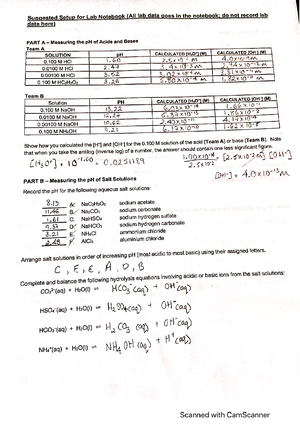 Suggested Setup for Lab Notebook (All lab data goes in the notebook; do not record lab
data here)
PART A – Measuring the pH of Acids and Bases
Team A
SOLUTION pH CALCULATED [H3O+] (M) CALCULATED [OH-] (M)
0.100 M HCl 1.60
0.0100 M HCl
0.00100 M HCl 3.52
0.100 M HC2H3O2 3.28
Team B
Solution pH CALCULATED [H3O+] (M) CALCULATED [OH-] (M)
0.100 M NaOH 13.22
0.0100 M NaOH 12.24
0.00100 M NaOH 10.62
0.100 M NH4OH 9.21
Show how you calculated the [H+] and [OH-] for the 0.100 M solution of the acid (Team A) or base (Team B). Note
that when you take the antilog (inverse log) of a number, the answer should contain one less significant figure.
[H3O+] = 10^-1.60 = 0.0251189
[OH-] = 4.0×10^-13 m
PART B – Measuring the pH of Salt Solutions
Record the pH for the following aqueous salt solutions:
8.15 A: NaC2H3O2 sodium acetate
11.46 B: Na2CO3 sodium carbonate
1.61 C: NaHSO4 sodium hydrogen sulfate
D: NaHCO3 sodium hydrogen carbonate
3.21 E: NH4Cl ammonium chloride
2.48 F: AlCl3 aluminium chloride
Arrange salt solutions in order of increasing pH (most acidic to most basic) using their assigned letters.
C, F, E, A, D, B
Complete and balance the following hydrolysis equations involving acidic or basic ions from the salt solutions:
CO3²⁻(aq) + H2O(l) ⇌ HCO3⁻(aq) + OH⁻(aq)
HSO4⁻(aq) + H2O(l) ⇌ H2SO4(aq) + OH⁻(aq)
HCO3⁻(aq) + H2O(l) ⇌ H2CO3(aq) + OH⁻(aq)
NH4⁺(aq) + H2O(l) ⇌ NH4OH(aq) + H⁺(aq)
Scanned with CamScanner